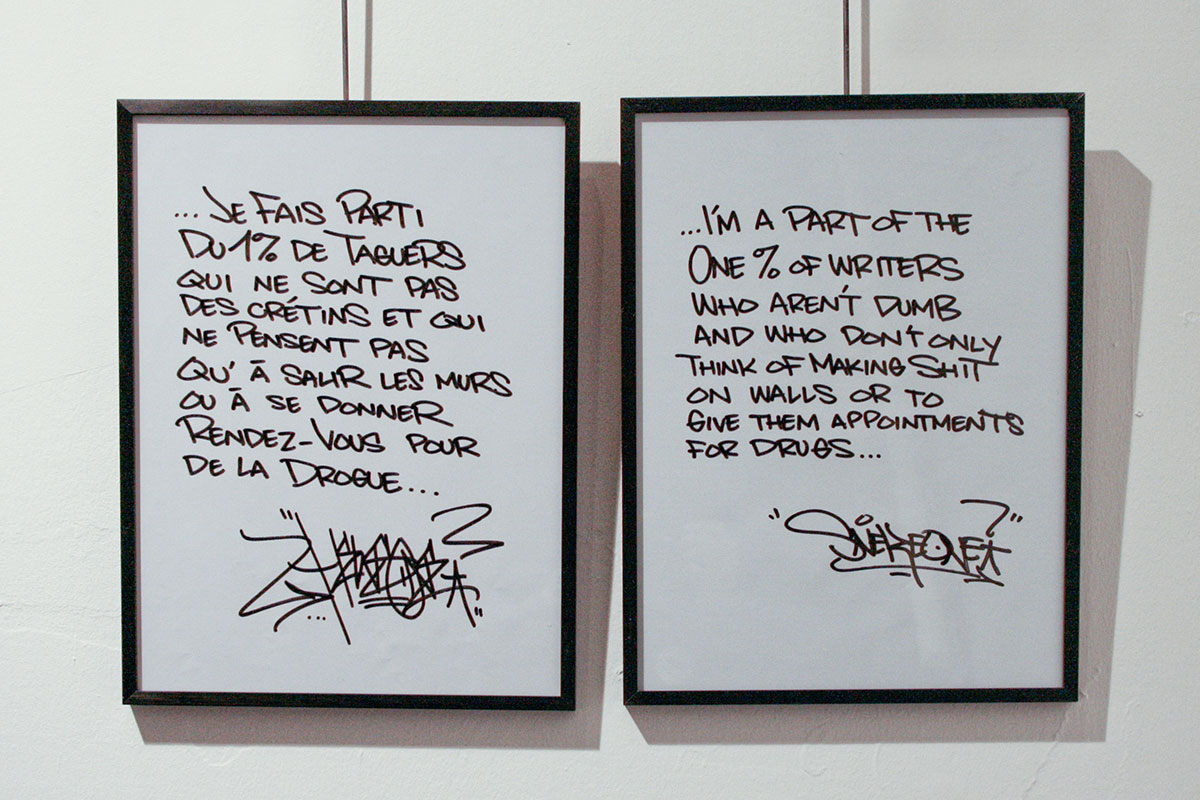 ...JE FAIS PARTI
DU 1% DE TAGUERS
QUI NE SONT PAS
DES CRÉTINS ET QUI
NE PENSENT PAS
QU'À SALIR LES MURS
OU À SE DONNER
RENDEZ-VOUS POUR
DE LA DROGUE...
...I'M A PART OF THE
ONE % OF WRITERS
WHO AREN'T DUMB
AND WHO DON'T ONLY
THINK OF MAKING SHIT
ON WALLS OR TO
GIVE THEM APPOINTMENTS
FOR DRUGS...